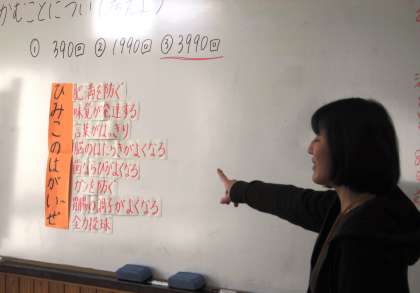 かむことについて考えよう
① 390回 ② 1990回 ③ 3990回
ひみこのはがいーぜ
肥満を防ぐ
味覚が発達する
言葉がはっきり
脳のはたらきがよくなる
歯ならびがよくなる
ガンを防ぐ
胃腸の調子がよくなる
全力投球